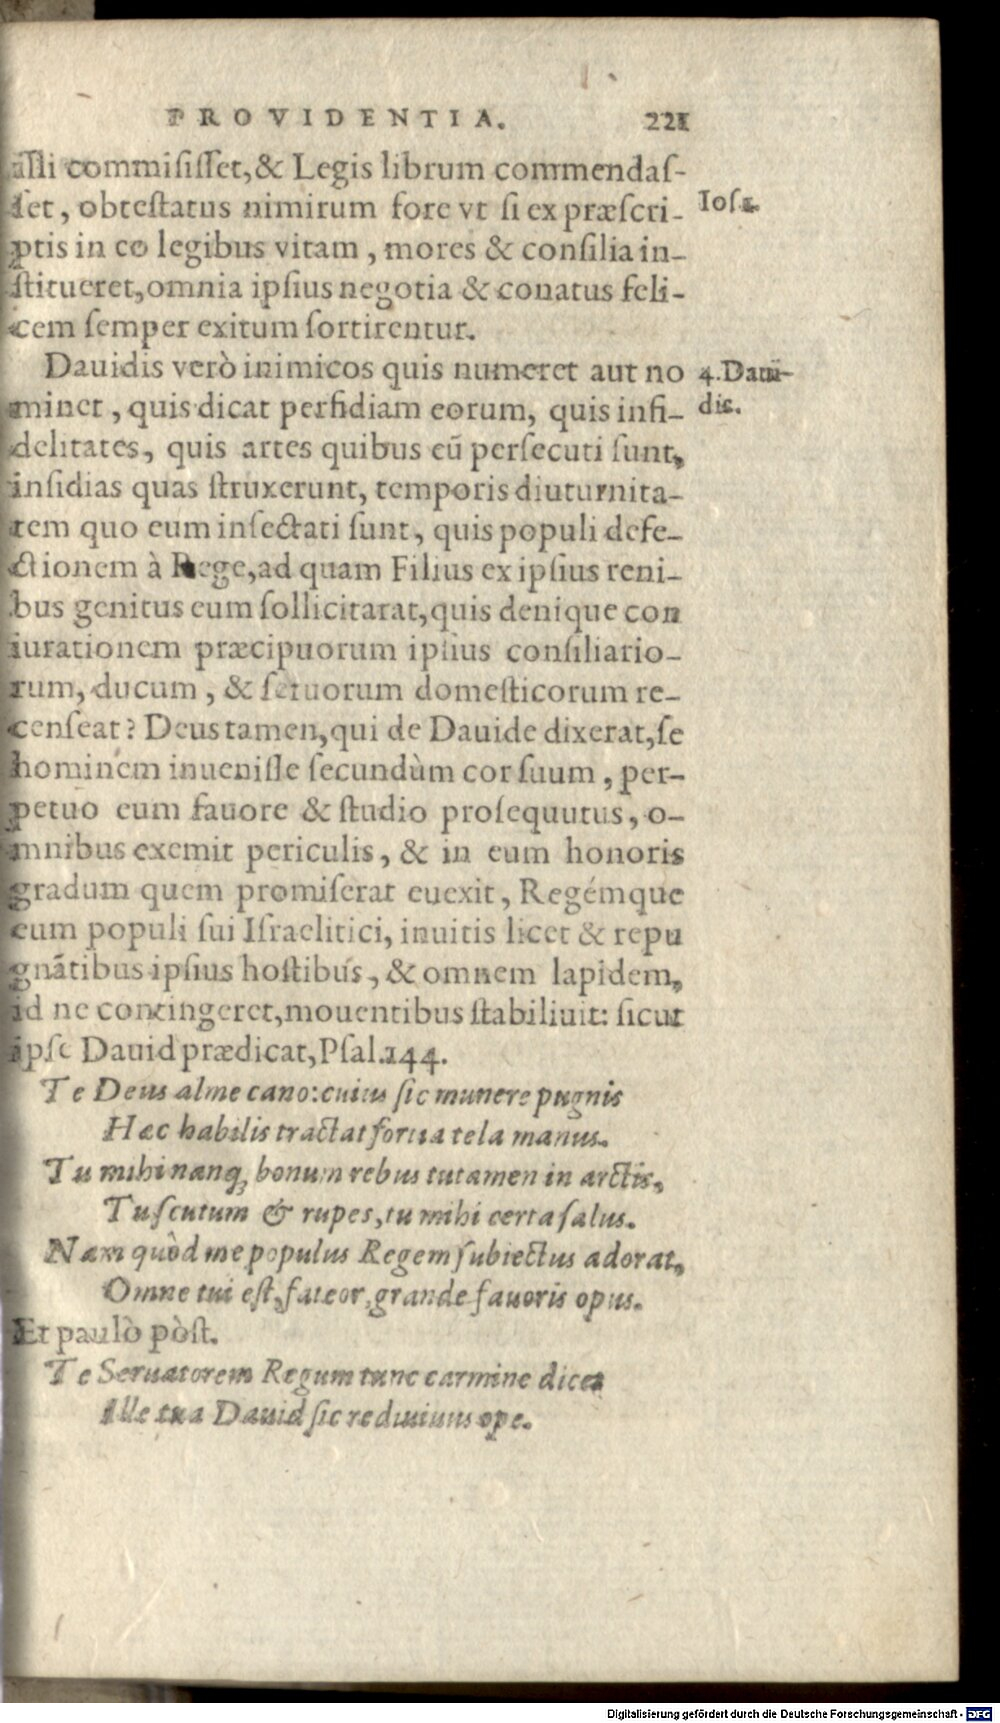 PROVIDENTIA. 221
illi commisisset, & Legis librum commendas-
set, obtestatus nimirum fore vt si ex præscri-
Ios 1.
ptis in eo legibus vitam, mores & consilia in-
stitueret, omnia ipsius negotia & conatus feli-
cem semper exitum sortirentur.
Dauidis verò inimicos quis numeret aut no
4. Daui-
minet, quis dicat perfidiam eorum, quis infi-
dis.
delitates, quis artes quibus eũ persecuti sunt,
insidias quas struxerunt, temporis diuturnita-
tem quo eum insectati sunt, quis populi defe-
ctionem à Rege, ad quam Filius ex ipsius reni-
bus genitus eum sollicitarat, quis denique con
iurationem præcipuorum ipsius consiliario-
rum, ducum, & seruorum domesticorum re-
censeat? Deus tamen, qui de Dauide dixerat, se
hominem inuenisse secundùm cor suum, per-
petuo eum fauore & studio prosequutus, o-
mnibus exemit periculis, & in eum honoris
gradum quem promiserat euexit, Regémque
eum populi sui Israelitici, inuitis licet & repu
gnãtibus ipsius hostibus, & omnem lapidem,
id ne contingeret, mouentibus stabiliuit: sicut
ipse Dauid prædicat, Psal. 144.
Te Deus alme cano: cuius sic munere pugnis
Hæc habilis tractat fortia tela manus.
Tu mihi nanq; bonum rebus tutamen in arctis,
Tu scutum & rupes, tu mihi certa salus.
Nam quòd me populus Regem subiectus adorat,
Omne tui est, fateor, grande fauoris opus.
Et paulò pòst.
Te Seruatorem Regum tunc carmine dicet
Ille tua Dauid sic rediuiuus ope.
Digitalisierung gefördert durch die Deutsche Forschungsgemeinschaft - DFG